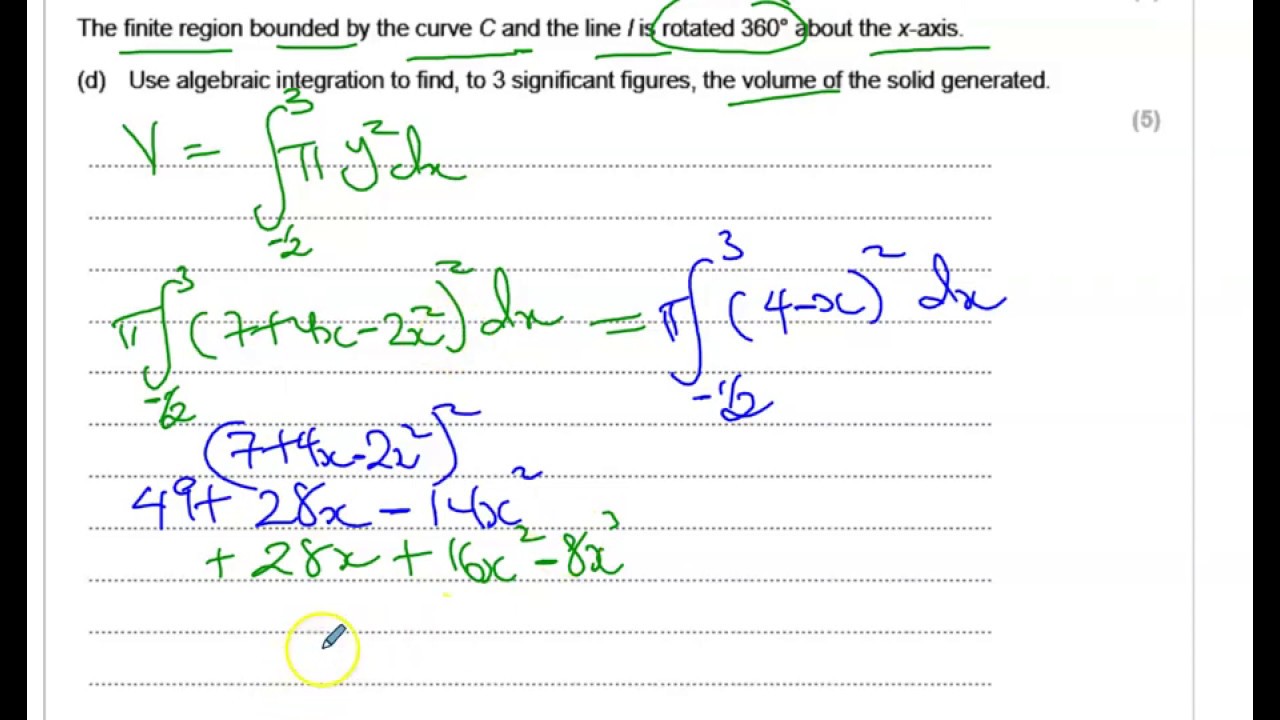 The finite region bounded by the curve C and the line l is rotated 360° about the x-axis.
(d) Use algebraic integration to find, to 3 significant figures, the volume of the solid generated.
(5)
V = ∫₋₁/₂³ π y² dx
π ∫₋₁/₂³ (7+4x-2x²)² dx = π ∫₋₁/₂³ (4-x)² dx
(7+4x-2x²)²
49 + 28x - 14x²
+ 28x + 16x² - 8x³